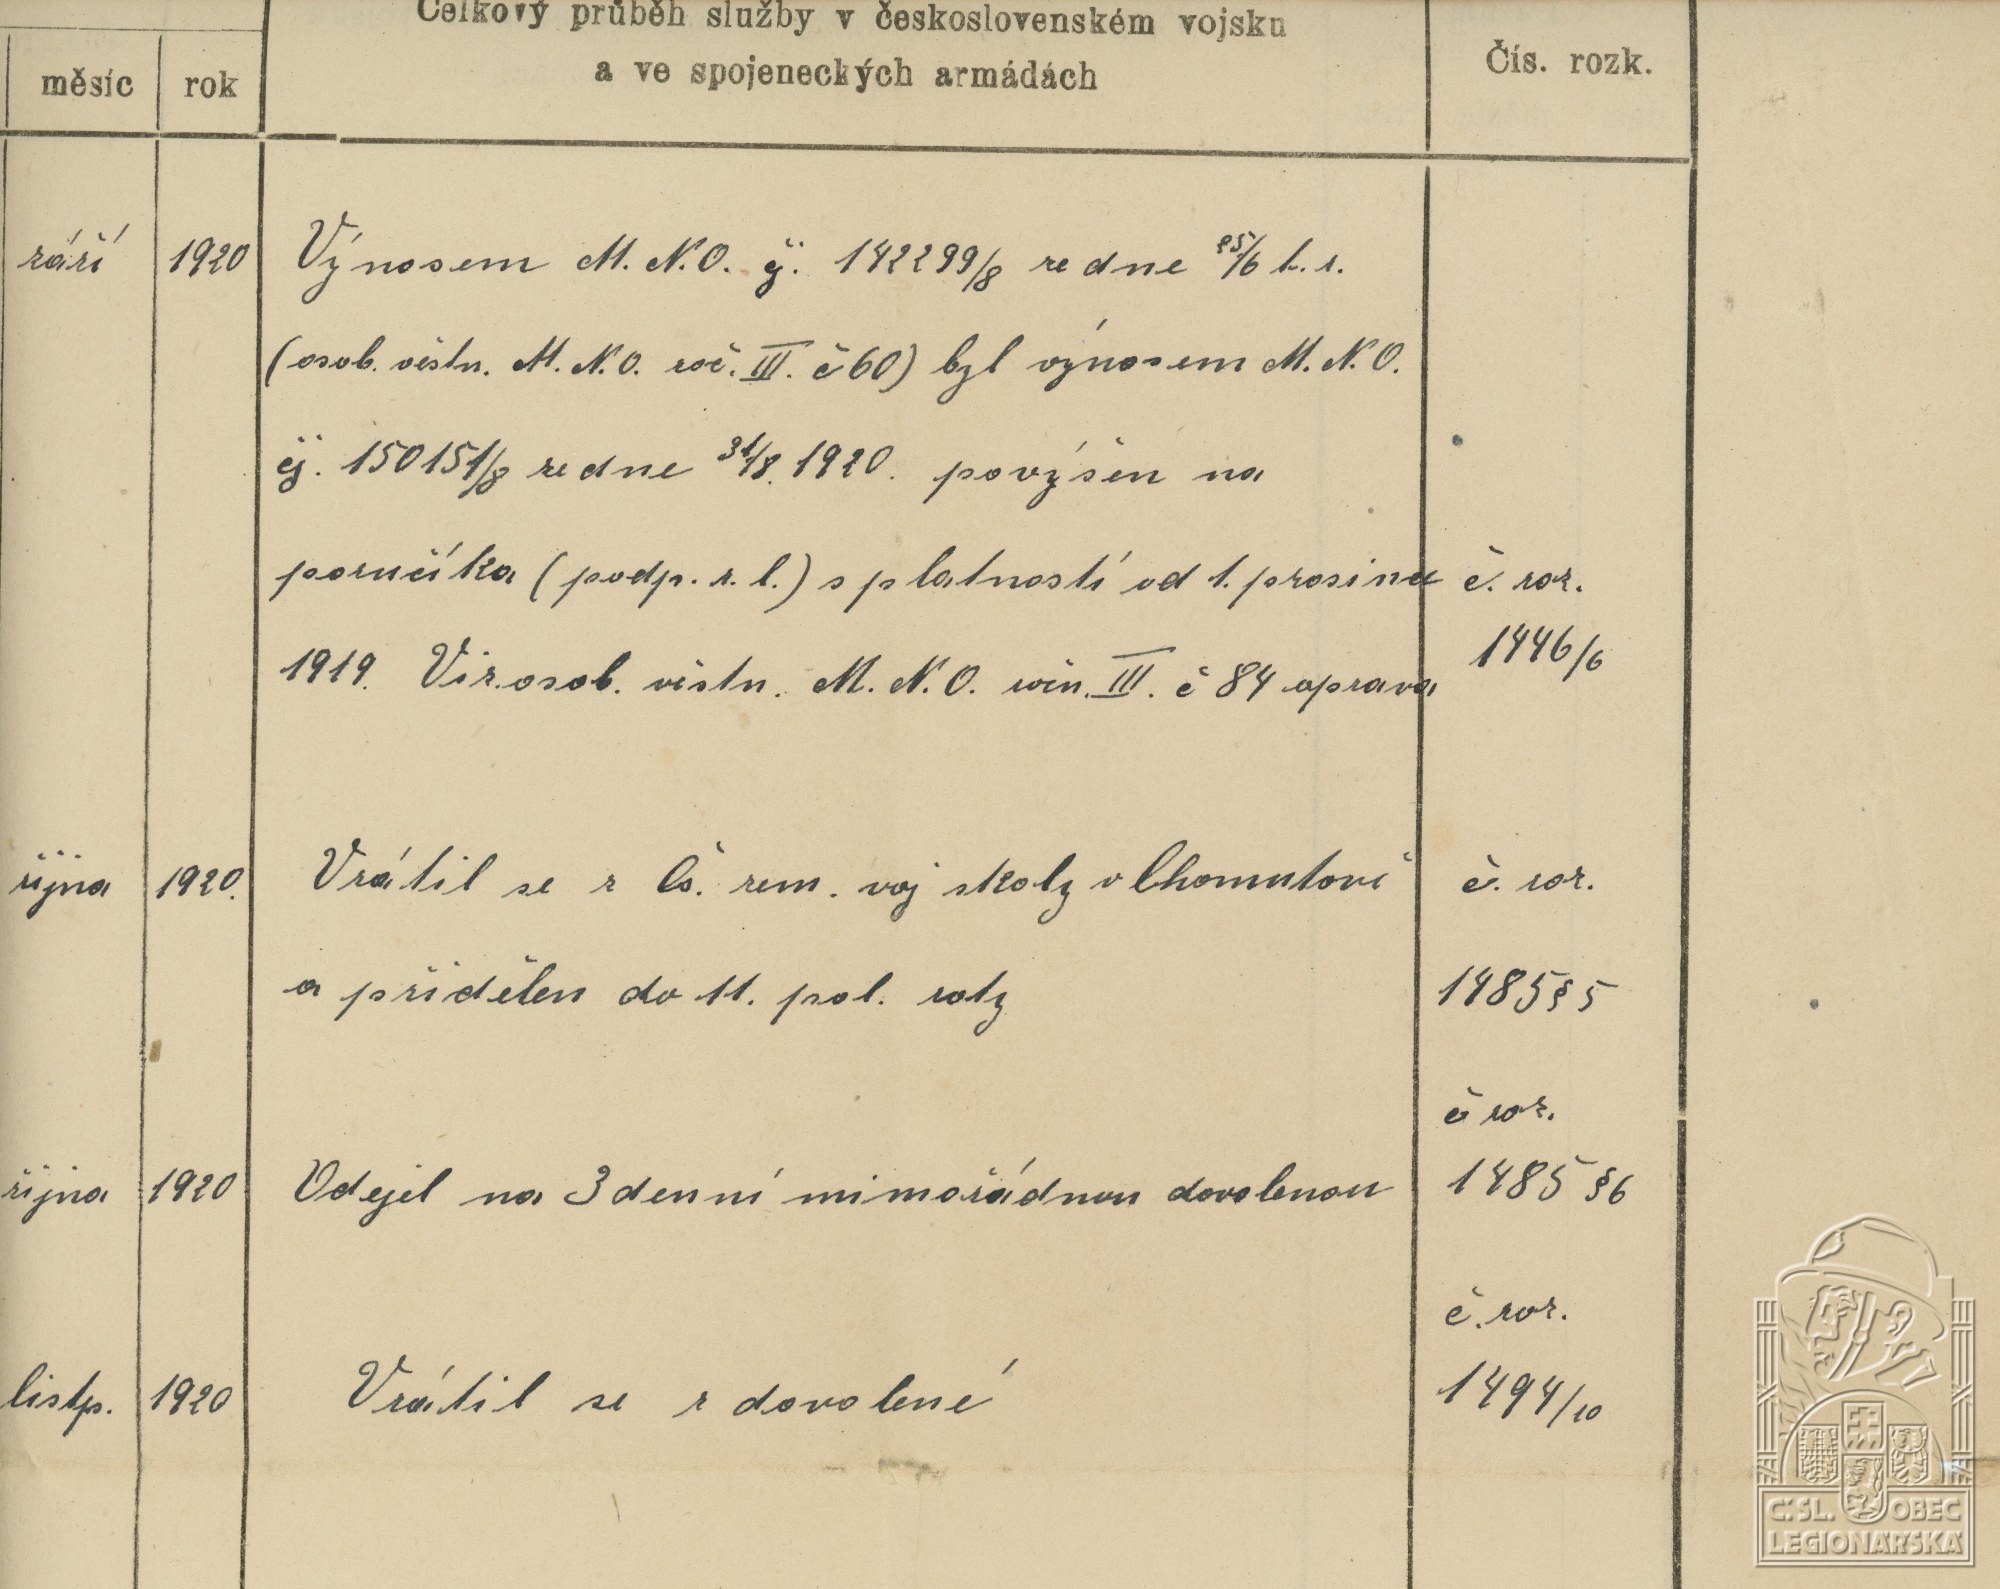 Celkový průběh služby v československém vojsku
a ve spojeneckých armádách
měsíc rok Čís. rozk.
září 1920 Výnosem M.N.O. čj. 142299/8 ze dne 25/6 t.r.
(osob. věstn. M.N.O. roč. III. č 60) byl výnosem M.N.O.
čj. 150151/8 ze dne 31/8. 1920. povýšen na
poručíka (podp. r. l.) s platností od 1. prosince č. roz.
1919. Viz osob. věstn. M.N.O. roč. III. č 84 oprava 1446/6
října 1920. Vrátil se z Čs. zem. voj školy v Chomutově č. roz.
a přidělen do 11. pol. roty 1485 § 5
č roz.
října 1920 Odejel na 3 denní mimořádnou dovolenou 1485 § 6
č. roz.
listp. 1920 Vrátil se z dovolené 1494/10
Č.SL. OBEC
LEGIONÁŘSKÁ